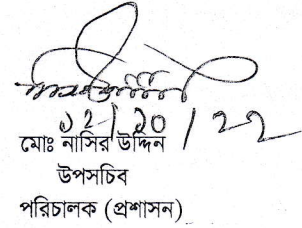 ১২/১০/২২
মোঃ নাসির উদ্দিন
উপসচিব
পরিচালক (প্রশাসন)